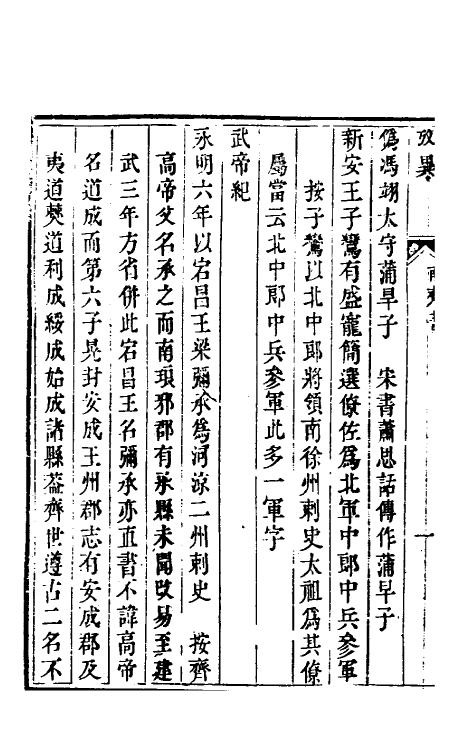 攷異
南齊書
一
僞馮翊太守蒲早子　宋書蕭思話傳作蒲早子
新安王子鸞有盛寵簡選僚佐爲北軍中郎中兵參軍
按子鸞以北中郎將領南徐州刺史太祖爲其僚
屬當云北中郎中兵參軍此多一軍字
武帝紀
永明六年以宕昌王梁彌承爲河涼二州刺史　按齊
高帝父名承之而南琅邪郡有承縣未聞改易至建
武三年方省併此宕昌王名彌承亦直書不諱高帝
名道成而第六子晃封安成王州郡志有安成郡及
夷道僰道利成綏成始成諸縣葢齊世遵古二名不